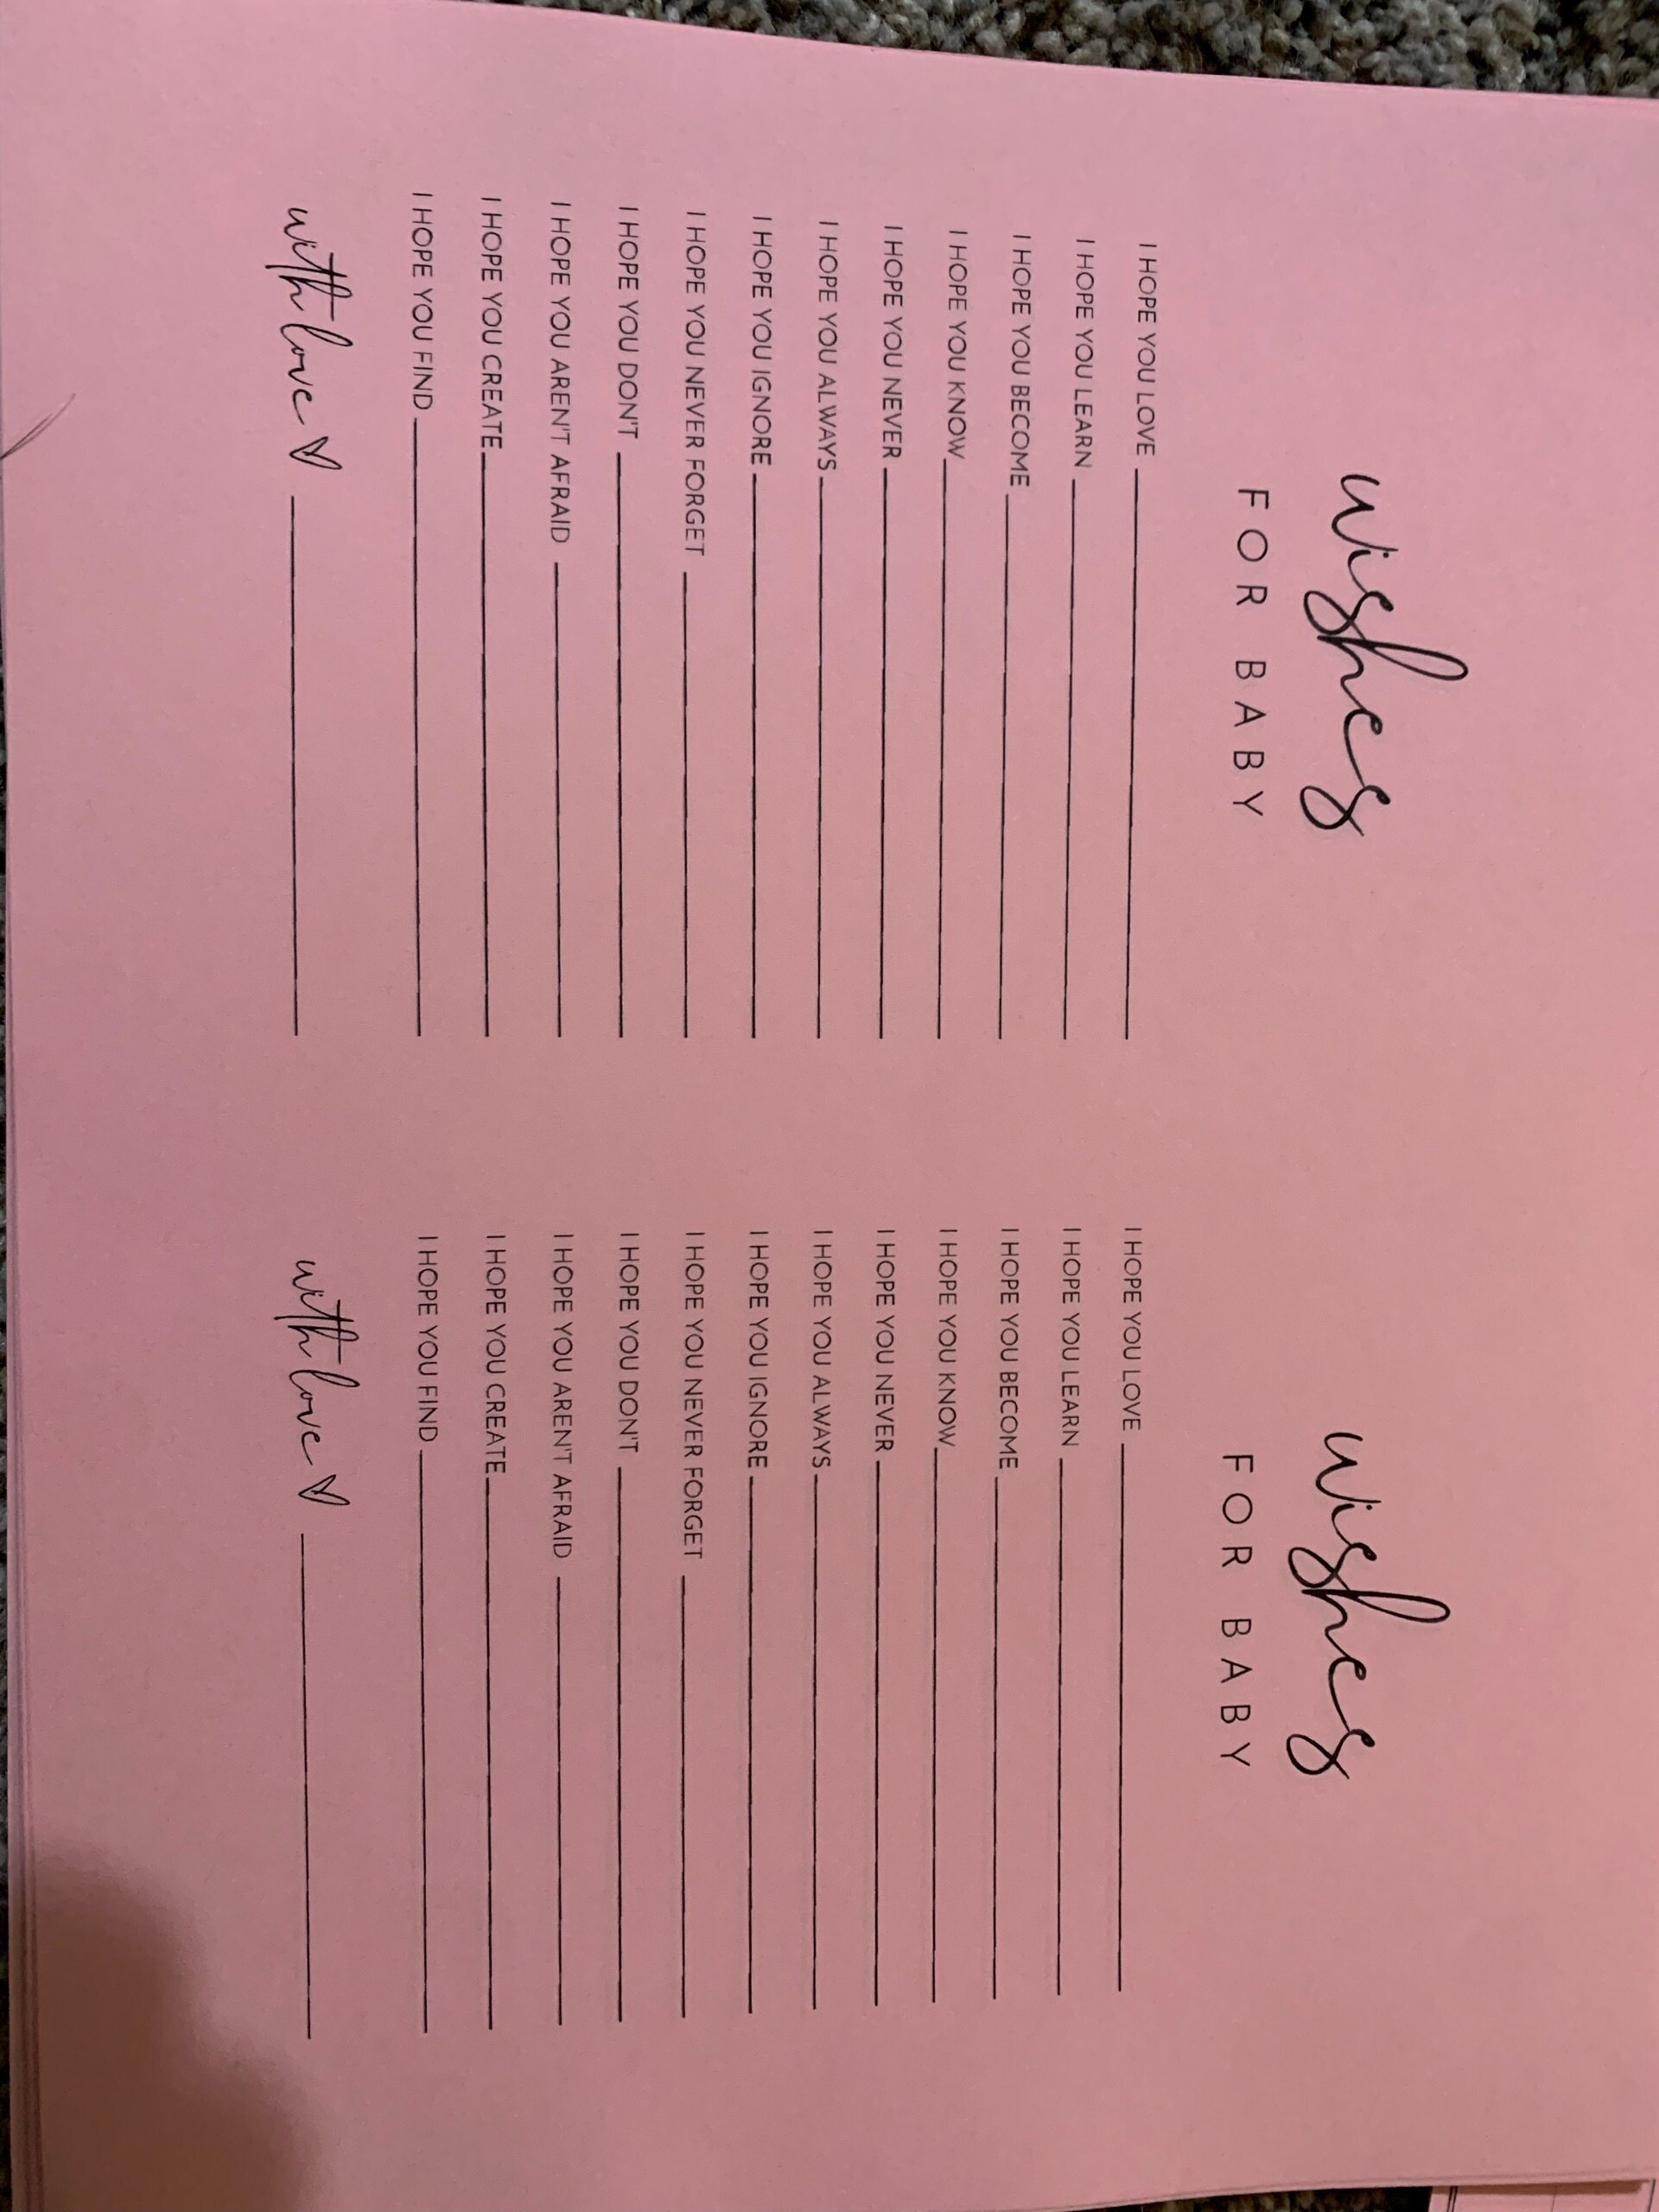 wishes
FOR BABY
I HOPE YOU LOVE
I HOPE YOU LEARN
I HOPE YOU BECOME
I HOPE YOU KNOW
I HOPE YOU NEVER
I HOPE YOU ALWAYS
I HOPE YOU IGNORE
I HOPE YOU NEVER FORGET
I HOPE YOU DON'T
I HOPE YOU AREN'T AFRAID
I HOPE YOU CREATE
I HOPE YOU FIND
with love
wishes
FOR BABY
I HOPE YOU LOVE
I HOPE YOU LEARN
I HOPE YOU BECOME
I HOPE YOU KNOW
I HOPE YOU NEVER
I HOPE YOU ALWAYS
I HOPE YOU IGNORE
I HOPE YOU NEVER FORGET
I HOPE YOU DON'T
I HOPE YOU AREN'T AFRAID
I HOPE YOU CREATE
I HOPE YOU FIND
with love